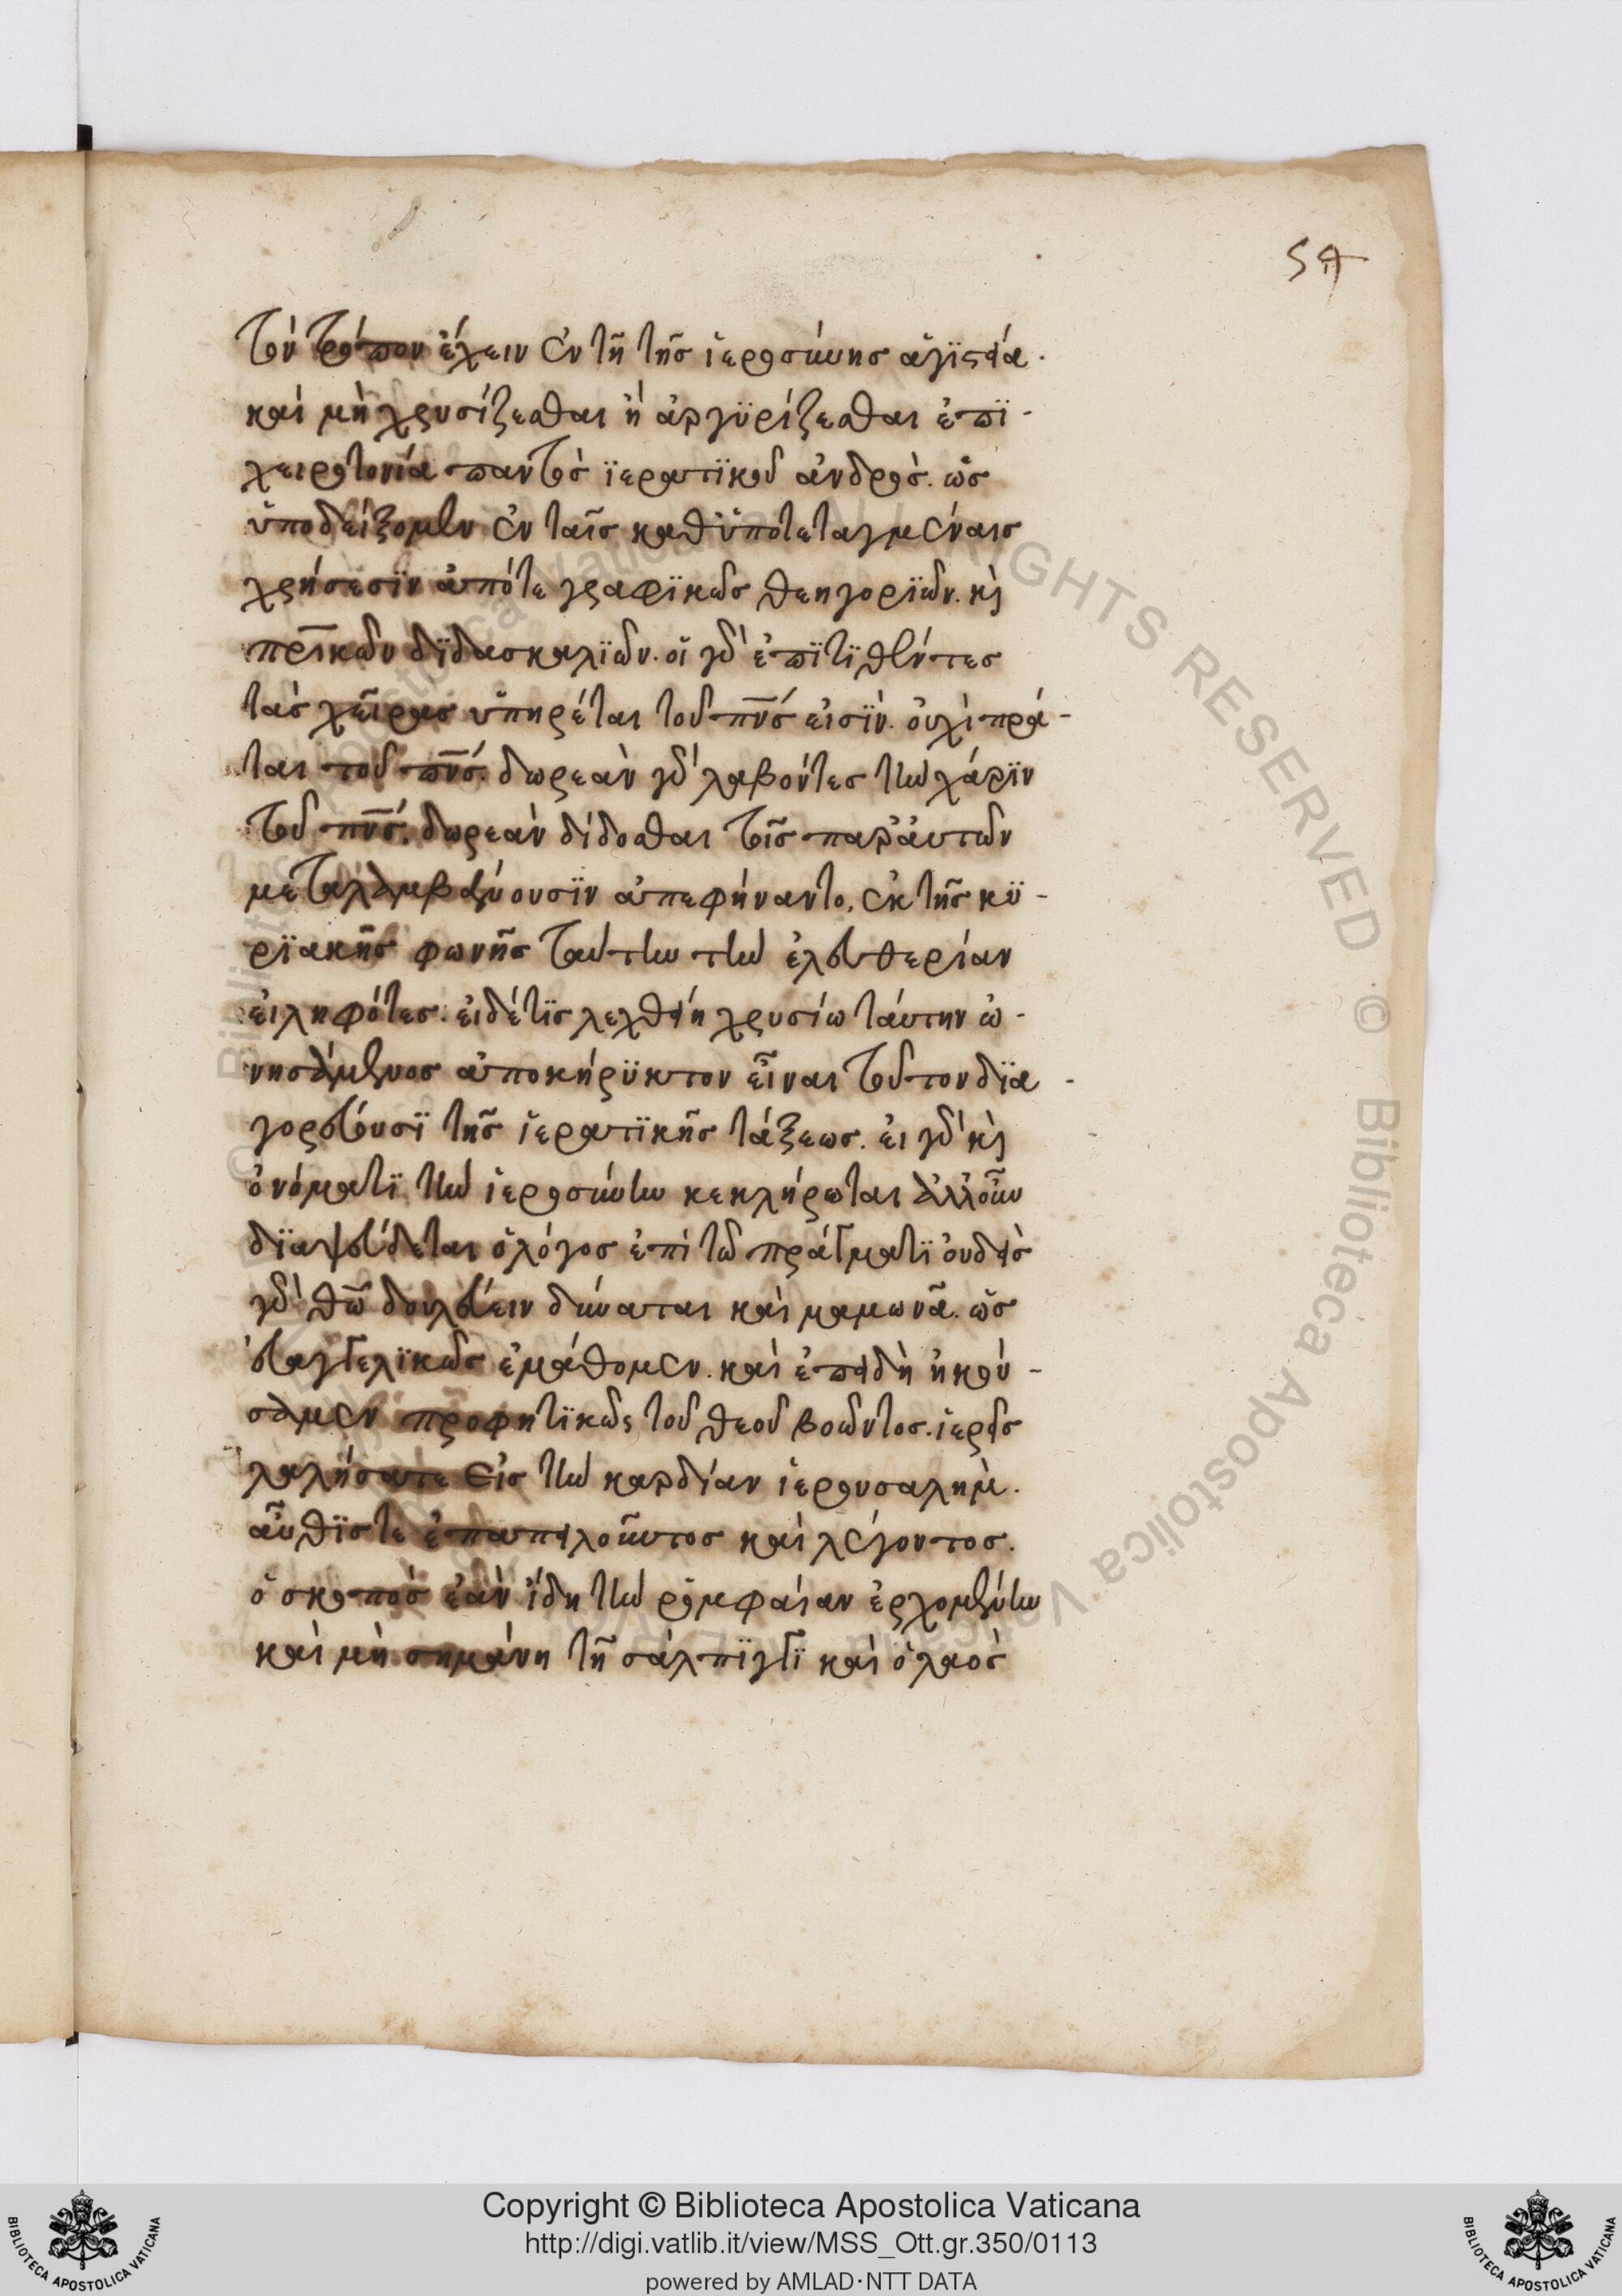 57
τὸν τρόπον ἔχειν ἐν τῆ τῆς ἱερωσύνης ἁγϊστεία.
καὶ μὴ χρυσίζεσθαι ἢ ἀργϋρίζεσθαι ἐπϊ-
χειροτονία παντὸς ϊερατϊκοῦ ἀνδρός. ὡς
ὑποδείξομεν ἐν ταῖς καθ ὑποτεταγμέναις
χρήσεσϊν ἀπό τε γραφϊκῶς θεηγορϊῶν. κὶ
πρῑκῶν δϊδασκαλϊῶν. οἱ γὰρ ἐπϊτϊθέντες
τὰς χεῖρας ὑπηρέται τοῦ πνς εἰσϊν. οὐχὶ πρά-
ται τοῦ πνς. δωρεὰν γὰρ λαβόντες τὴν χάρϊν
τοῦ πνς. δωρεὰν δίδοσθαι τοῖς παρ αὐτῶν
μεταλαμβάνουσϊν ἀπεφήναντο. ἐκ τῆς κϋ-
ρϊακῆς φωνῆς ταύτην τὴν ἐλευθερίαν
εἰληφότες. εἰ δέ τϊς λεχθείη χρυσίω ταύτην ὠ-
νησάμενος ἀποκήρϋκτον εἶναι τοῦτον δϊα-
γορεύουσϊ τῆς ἱερατϊκῆς τάξεως. εἰ γὰρ κὶ
ὀνόματϊ τὴν ἱερωσύνην κεκλήρωται ἀλλ οὖν
δϊαψεύδεται ὁ λόγος ἐπὶ τῶ πράγματϊ οὐδεὶς
γὰρ θῶ δουλεύειν δύναται καὶ μαμωνᾶ. ὡς
εὐαγγελϊκῶς ἐμάθομεν. καὶ ἐπειδὴ ἠκού-
σαμεν προφητϊκῶς τοῦ θεοῦ βοῶντος. ἱερεῖς
λαλήσατε εἰς τὴν καρδίαν ἱερουσαλήμ.
αὖθϊς τε ἐπαπειλοῦντος καὶ λέγοντος.
ὁ σκοπὸς ἐὰν ἴδη τὴν ῥομφαίαν ἐρχομένην
καὶ μὴ σημάνη τῆ σάλπϊγγϊ καὶ ὁ λαὸς
Copyright © Biblioteca Apostolica Vaticana
http://digi.vatlib.it/view/MSS_Ott.gr.350/0113
powered by AMLAD·NTT DATA